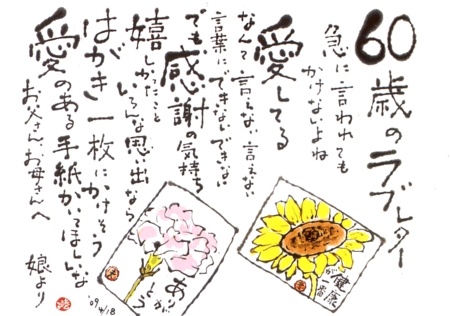 60歳のラブレター
急に言われても
かけないよね
愛してる
なんて言えない言えない
言葉にできないできない
でも感謝の気持ち
嬉しかったこと
いろんな思い出なら
はがき一枚にかけそう
愛のある手紙かいてほしいな
お父さん、お母さんへ
娘より
'09 4/18
ありがとう
健康が一番